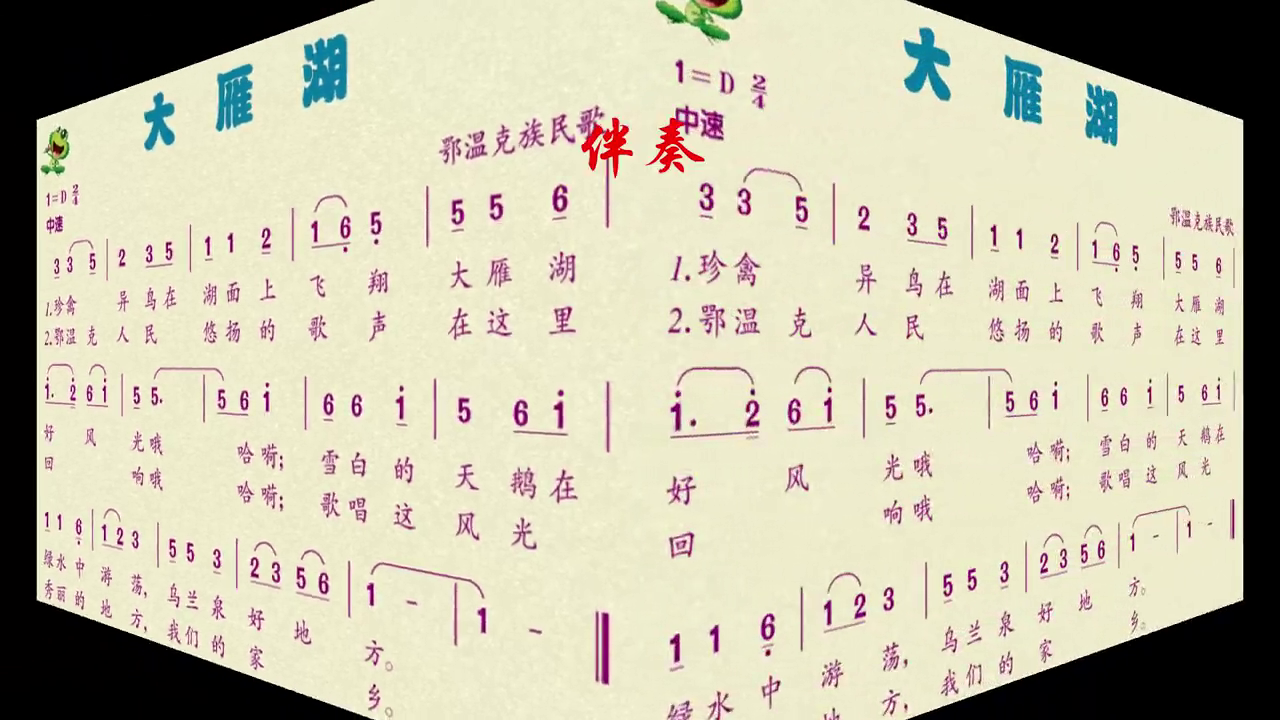 大雁湖
鄂温克族民歌
1=D 2/4
中速
3 3 5 | 2 3 5 | 1 1 2 | 1 6 5 | 5 5 6 |
1.珍禽 异鸟在 湖面上 飞翔 大雁湖
2.鄂温克 人民 悠扬的 歌声 在这里
1. 2 6 1 | 5 5. | 5 6 1 | 6 6 1 | 5 6 1 |
好风 光哦 哈嗬; 雪白的 天鹅在
回 响哦 哈嗬; 歌唱这 风光
1 1 6 | 1 2 3 | 5 5 3 | 2 3 5 6 | 1 - | 1 -
绿水中 游荡, 乌兰泉 好地 方。
秀丽的 地方, 我们的 家 乡。
伴奏
大雁湖
1=D 2/4
中速
鄂温克族民歌
3 3 5 | 2 3 5 | 1 1 2 | 1 6 5 | 5 5 6 |
1.珍禽 异鸟在 湖面上 飞翔 大雁湖
2.鄂温克 人民 悠扬的 歌声 在这里
1. 2 6 1 | 5 5. | 5 6 1 | 6 6 1 | 5 6 1 |
好风 光哦 哈嗬; 雪白的 天鹅在
回 响哦 哈嗬; 歌唱这 风光
1 1 6 | 1 2 3 | 5 5 3 | 2 3 5 6 | 1 - | 1 -
绿水中 游荡, 乌兰泉 好地 方。
地方, 我们的 家 乡。